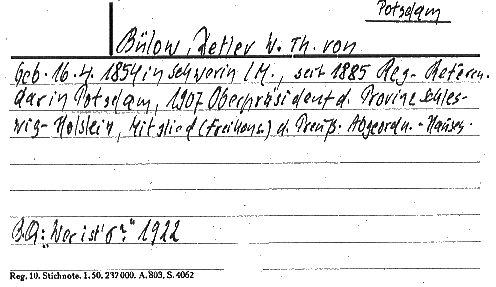 Potsdam
Bülow, Detlev W. Th. von
Geb. 16.4.1854 in Schwerin i.M., seit 1885 Reg.-Referen-
dar in Potsdam, 1907 Oberpräsident d. Provinz Schles-
wig-Holstein, Mitglied (Freikons.) d. Preuß. Abgeordn.-Hauses.
B.Q.: "Wer ist's?" 1922
Reg. 10. Stichnote. 1. 50. 237000. A. 803. S. 4062